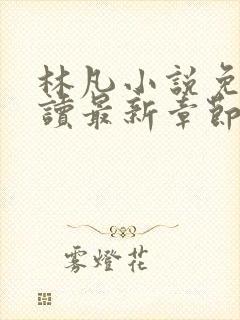 林凡小說免
讀最新章節
雾燈花